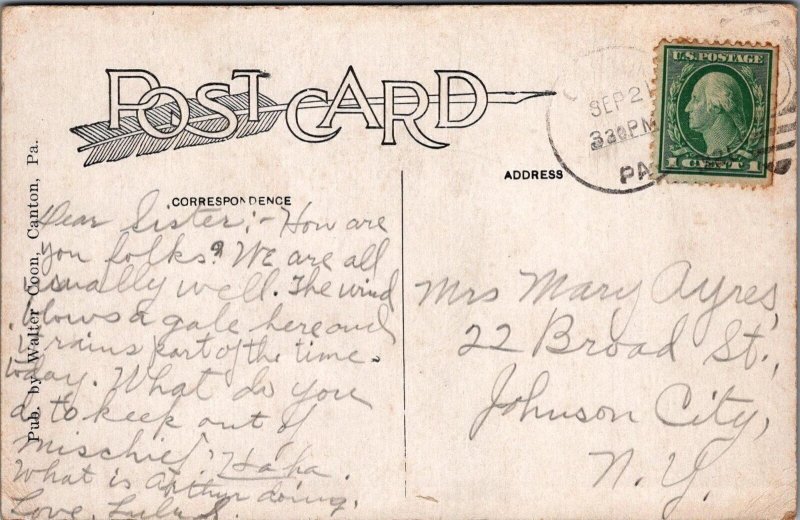 POST CARD
CORRESPONDENCE
ADDRESS
Pub. by Walter Coon, Canton, Pa.
U.S. POSTAGE
1 CENT 1
SEP 21
330 PM
PA
Dear Sister;- How are
you folks? We are all
usually well. The wind
blows a gale here and
rains part of the time
today. What do you
do to keep out of
mischief, Ha ha.
What is Arthur doing.
Love, Lulu
Mrs Mary Ayres,
22 Broad St.,
Johnson City,
N.Y.